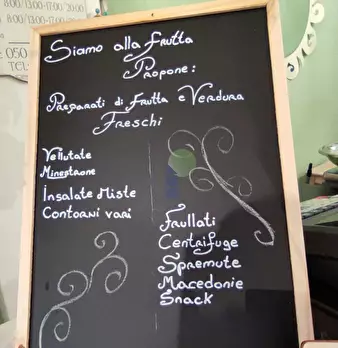 8:00/13:00-17:00/20:00
8:00/13:00-17:00
: 050
TEL:
Siamo alla frutta
Propone:
Preparati di Frutta e Verdura
Freschi
Vellutate
Minestrone
Insalate Miste
Contorni vari
Frullati
Centrifuge
Spremute
Macedonie
Snack